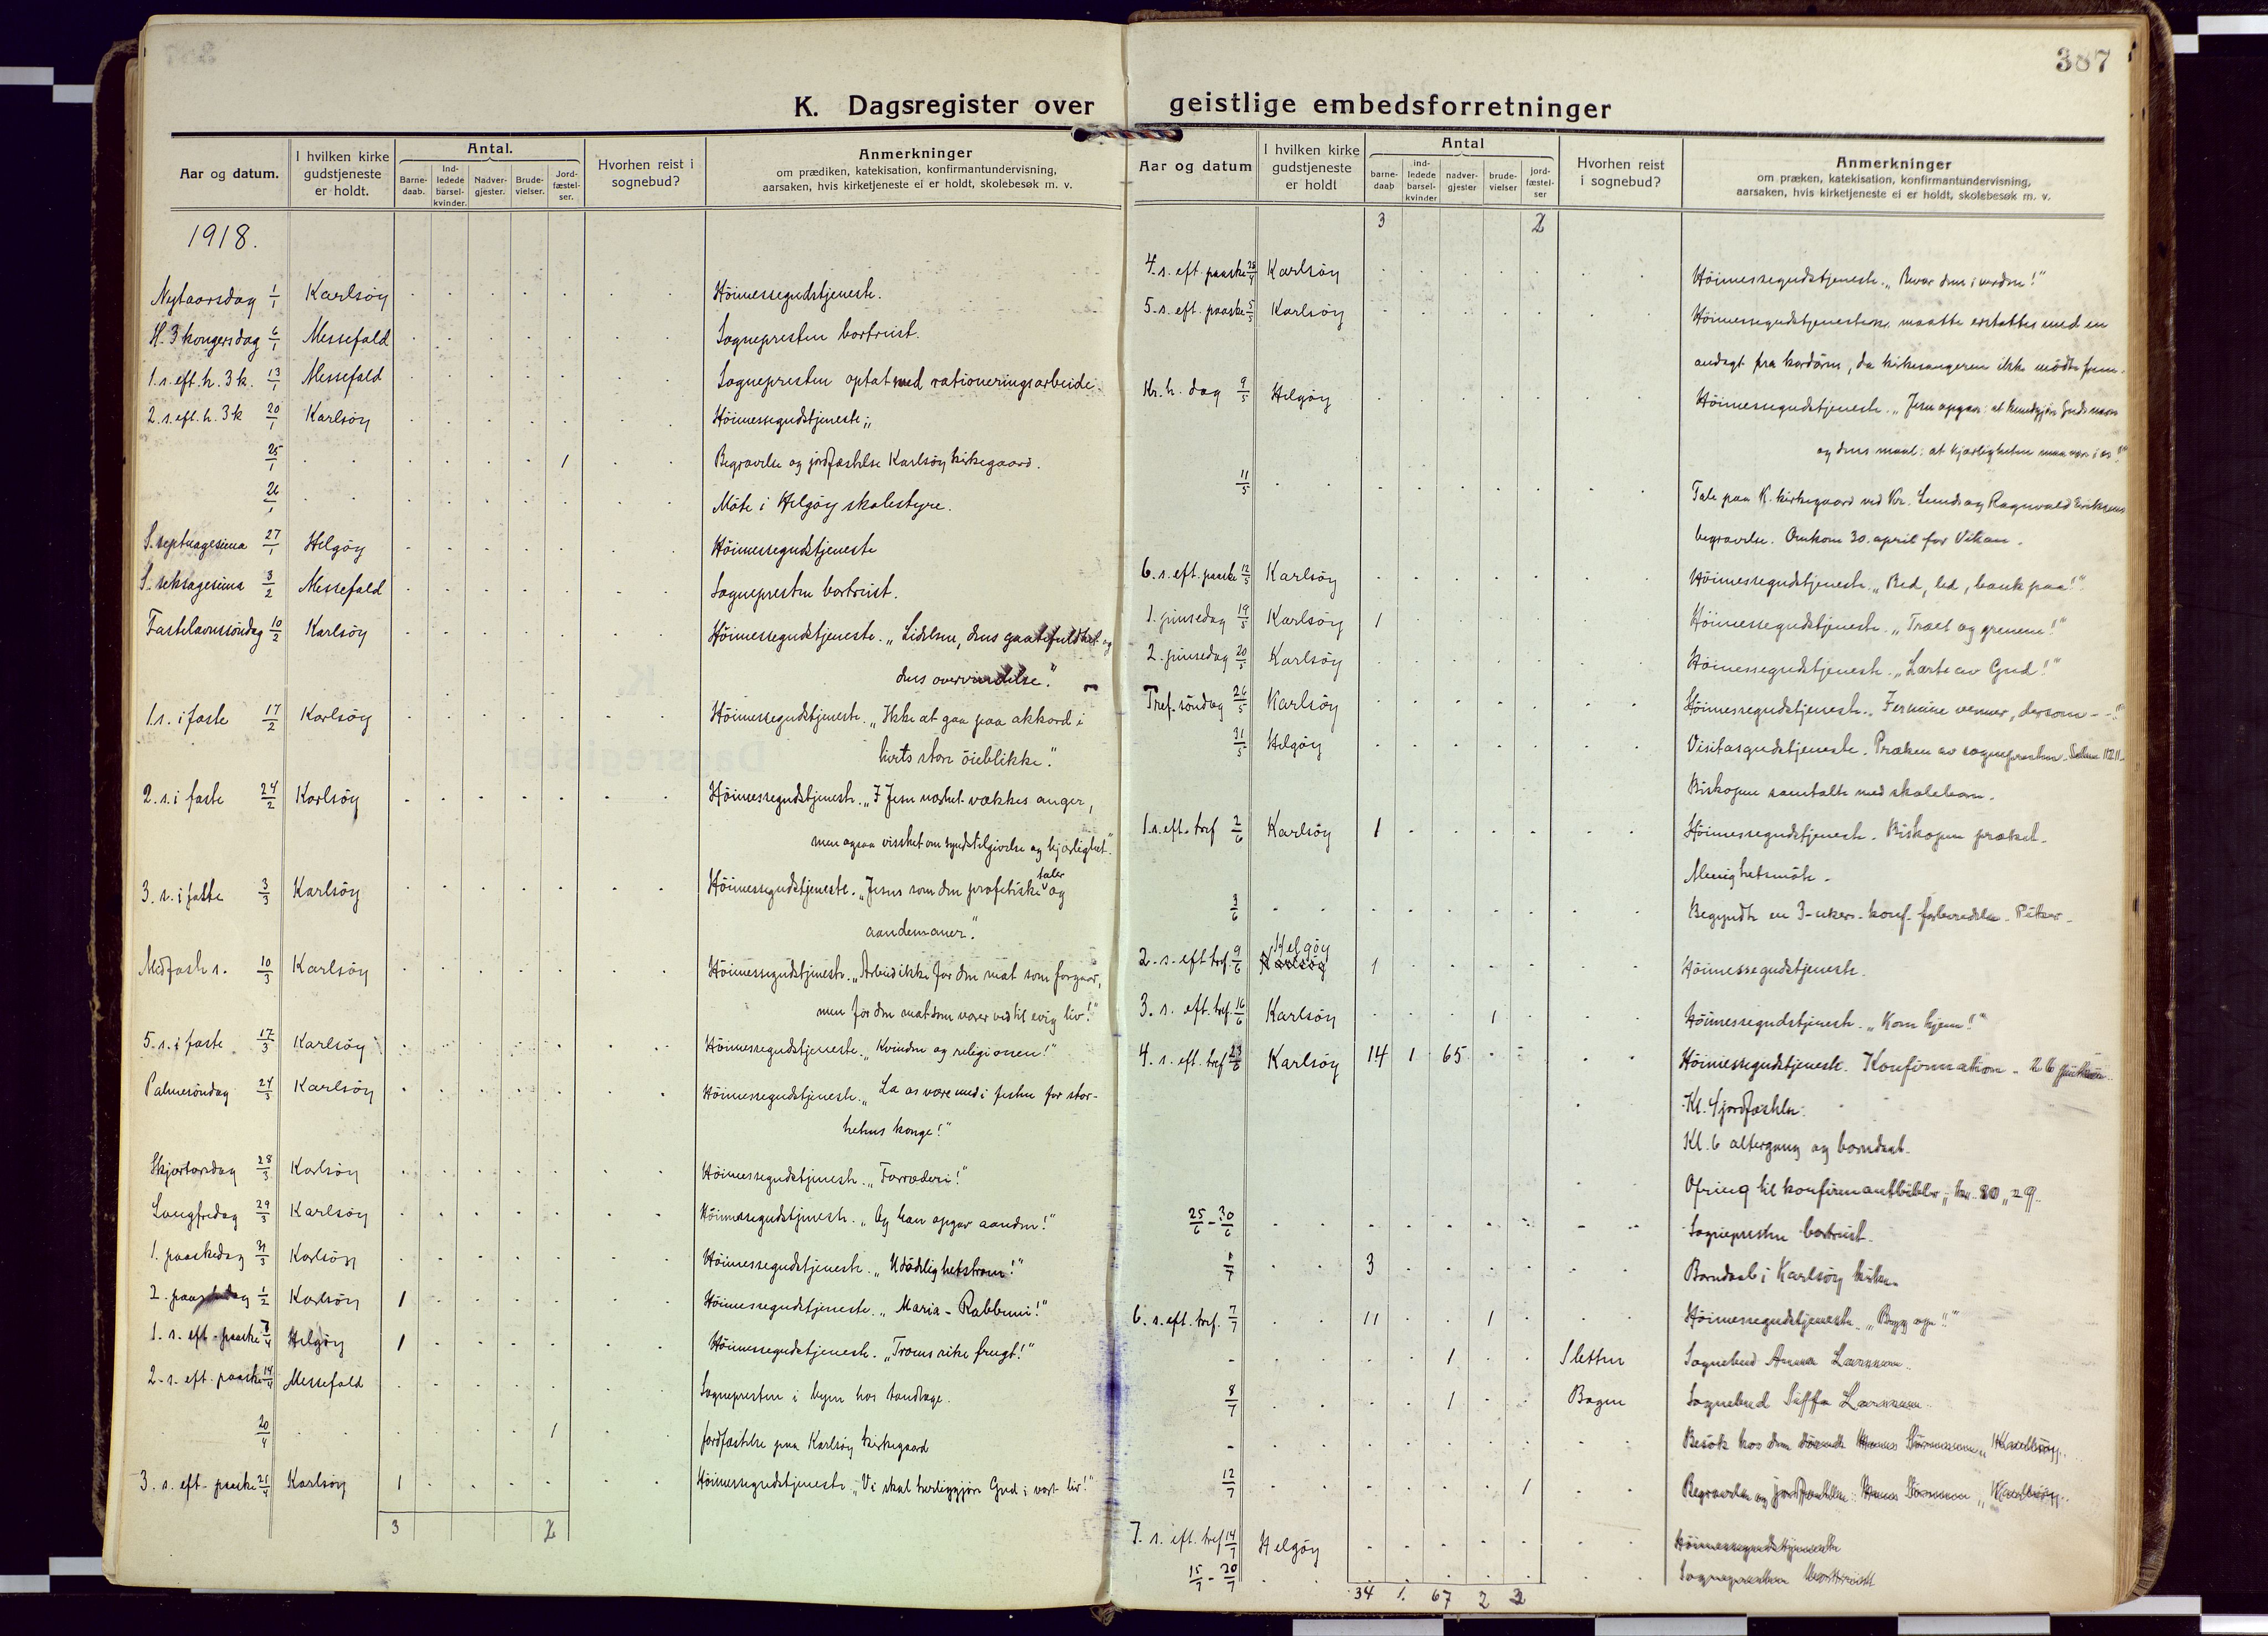 387
K. Dagsregister over geistlige embedsforretninger
Aar og datum.
I hvilken kirke gudstjeneste er holdt.
Antal.
Barnedaab.
Indledede barselkvinder.
Nadvergjester.
Brudevielser.
Jordfæstelser.
Hvorhen reist i sognebud?
Anmerkninger
om prædiken, katekisation, konfirmantundervisning,
aarsaken, hvis kirketjeneste ei er holdt, skolebesøk m. v.
1918.
Nytaarsdag 1/1 Karlsöy Höimessegudstjeneste.
H. 3 kongersdag 6/1 Messefald Sognepresten bortreist.
1. s. eft. h. 3 k. 13/1 Messefald Sognepresten optat med rationeringsarbeide.
2. s. eft. h. 3 k 20/1 Karlsöy Höimessegudstjeneste
25/1 1 Begravelse og jordfæstelse Karlsöy kirkegaard.
26/1 Möte i Helgöy skolestyre.
S. septuagesima 27/1 Helgöy Höimessegudstjeneste
S. seksagesima 3/2 Messefald Sognepresten bortreist.
Fastelavnssöndag 10/2 Karlsöy Höimessegudstjeneste. „Lidelsen, dens gaatefuldhet og
dens overvindelse."
1. s. i faste 17/2 Karlsöy Höimessegudstjeneste. „Ikke at gaa paa akkord i
livets store öieblikke."
2. s. i faste 24/2 Karlsöy Höimessegudstjeneste. „I Jesu nærhet vækkes anger,
men ogsaa visshet om syndstilgivelse og kjærlighet."
3. s. i faste 3/3 Karlsöy Höimessegudstjeneste. „Jesus som den profetiske taler og
aandemaner."
Midfaste s. 10/3 Karlsöy Höimessegudstjeneste. „Arbeid ikke for den mat som forgaar,
men for den mat som varer ved til evig liv!"
5. s. i faste 17/3 Karlsöy Höimessegudstjeneste. „Kvinden og religionen!"
Palmesöndag 24/3 Karlsöy Höimessegudstjeneste. „La os være med i festen for stor-
hetens konge!"
Skjærtorsdag 28/3 Karlsöy Höimessegudstjeneste. „Forræderi!"
Langfredag 29/3 Karlsöy Höimessegudstjeneste. „Og han opgav aanden!"
1. paaskedag 31/3 Karlsöy Höimessegudstjeneste. „Udödelighetstroen!"
2. paaskedag Karlsöy 1 Höimessegudstjeneste. „Maria - Rabbuni!"
1. s. eft. paaske 7/4 Helgöy 1 Höimessegudstjeneste. „Troens rike frugt!"
2. s. eft. paaske 14/4 Messefald Sognepresten i byen hos tandlæge.
20/4 1 Jordfæstelse paa Karlsöy kirkegaard
3. s. eft. paaske 21/4 Karlsöy 1 Höimessegudstjeneste. „Vi skal herliggjöre Gud i vort liv!"
3 2
Aar og datum
I hvilken kirke gudstjeneste er holdt
Antal
barnedaab
indledede barselkvinder
nadvergjester
brudevielser
jordfæstelser
Hvorhen reist i sognebud?
Anmerkninger
om præken, katekisation, konfirmantundervisning,
aarsaken, hvis kirketjeneste ei er holdt, skolebesøk m. v.
3 2
4. s. eft. paaske 28/4 Karlsöy Höimessegudstjeneste. „Bevar dem i verden!"
5. s. eft. paaske 5/5 Karlsöy Höimessegudstjenesten maatte erstattes med en
andagt fra kordören, da kirkesangeren ikke mödte frem.
Kr. h. dag 9/5 Helgöy Höimessegudstjeneste. „Jesu opgave: at kundgjöre Guds navn
og dens maal: at kjærligheten maa være i os!"
11/5 Tale paa K. kirkegaard ved Kr. Lunds og Ragnvald Eriksens
begravelse. Omkom 30. april for Vikan.
6. s. eft. paaske 12/5 Karlsöy Höimessegudstjeneste. „Bed, led, bank paa!"
1. pinsedag 19/5 Karlsöy 1 Höimessegudstjeneste. „Træet og grenene!"
2. pinsedag 20/5 Karlsöy Höimessegudstjeneste. „Lærte av Gud!"
Tref. söndag 26/5 Karlsöy Höimessegudstjeneste. venner, dersom - -!"
31/5 Helgöy Visitasgudstjeneste. Præken av sognepresten.
Biskopen samtalte med skolebarn.
1. s. eft. tref 2/6 Karlsöy 1 Höimessegudstjeneste. Biskopen præket.
Menighetsmöte.
3/6 Begyndte en 3-ukers konf. forberedelse.
2. s. eft tref. 9/6 Helgöy 1 Höimessegudstjeneste.
3. s. eft. tref. 16/6 Karlsöy 1 Höimessegudstjeneste. „Kom hjem!"
4. s. eft. tref 23/6 Karlsöy 14 1 65 Höimessegudstjeneste. Konfirmation.
Kl. 4 jordfæstelse.
Kl. 6 altergang og barnedaab.
Ofring til konfirmantbibler,
25/6 - 30/6 Sognepresten bortreist.
3 Barnedaab i Karlsöy kirke.
6. s. eft. tref. 7/7 11 1 Höimessegudstjeneste.
1 Sletten Sognebud Anna Larssen.
8/7 1 Bagen Sognebud Larssen.
Besök hos den Karlsöy.
12/7 1 Begravelse og jordfæstelse: Karlsöy.
7. s. eft. tref 14/7 Helgöy Höimessegudstjeneste
15/7 - 20/7 Sognepresten bortreist
34 1. 67 2 3